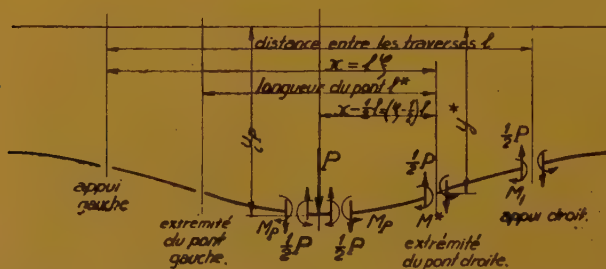 distance entre les traverses l
x = lφ
longueur du pont l*
x-½l=(φ-½)l
y*
yp
P
½P
½P
½P
½P
Mp
Mp
M*
M₁
appui gauche
extrémité du pont gauche.
extrémité du pont droite.
appui droit.